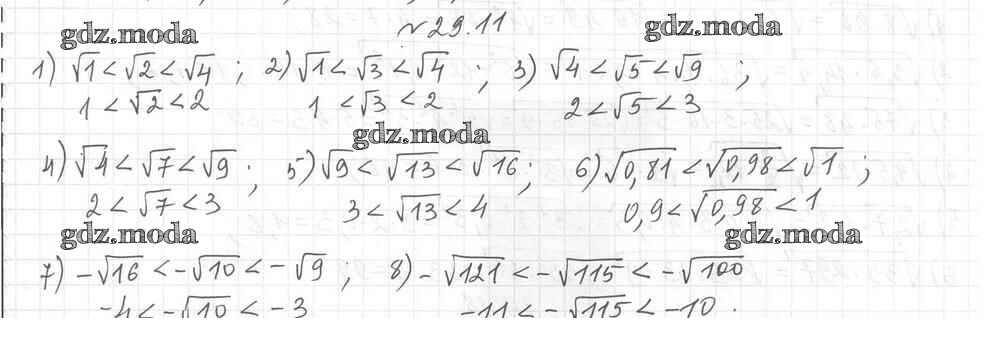 №29.11
gdz.moda gdz.moda
1) √1 < √2 < √4 ; 2) √1 < √3 < √4 ; 3) √4 < √5 < √9 ;
1 < √2 < 2 1 < √3 < 2 2 < √5 < 3
gdz.moda
4) √4 < √7 < √9 ; 5) √9 < √13 < √16 ; 6) √0,81 < √0,98 < √1 ;
2 < √7 < 3 3 < √13 < 4 0,9 < √0,98 < 1
gdz.moda gdz.moda
7) -√16 < -√10 < -√9 ; 8) -√121 < -√115 < -√100
-4 < -√10 < -3 -11 < -√115 < -10 .